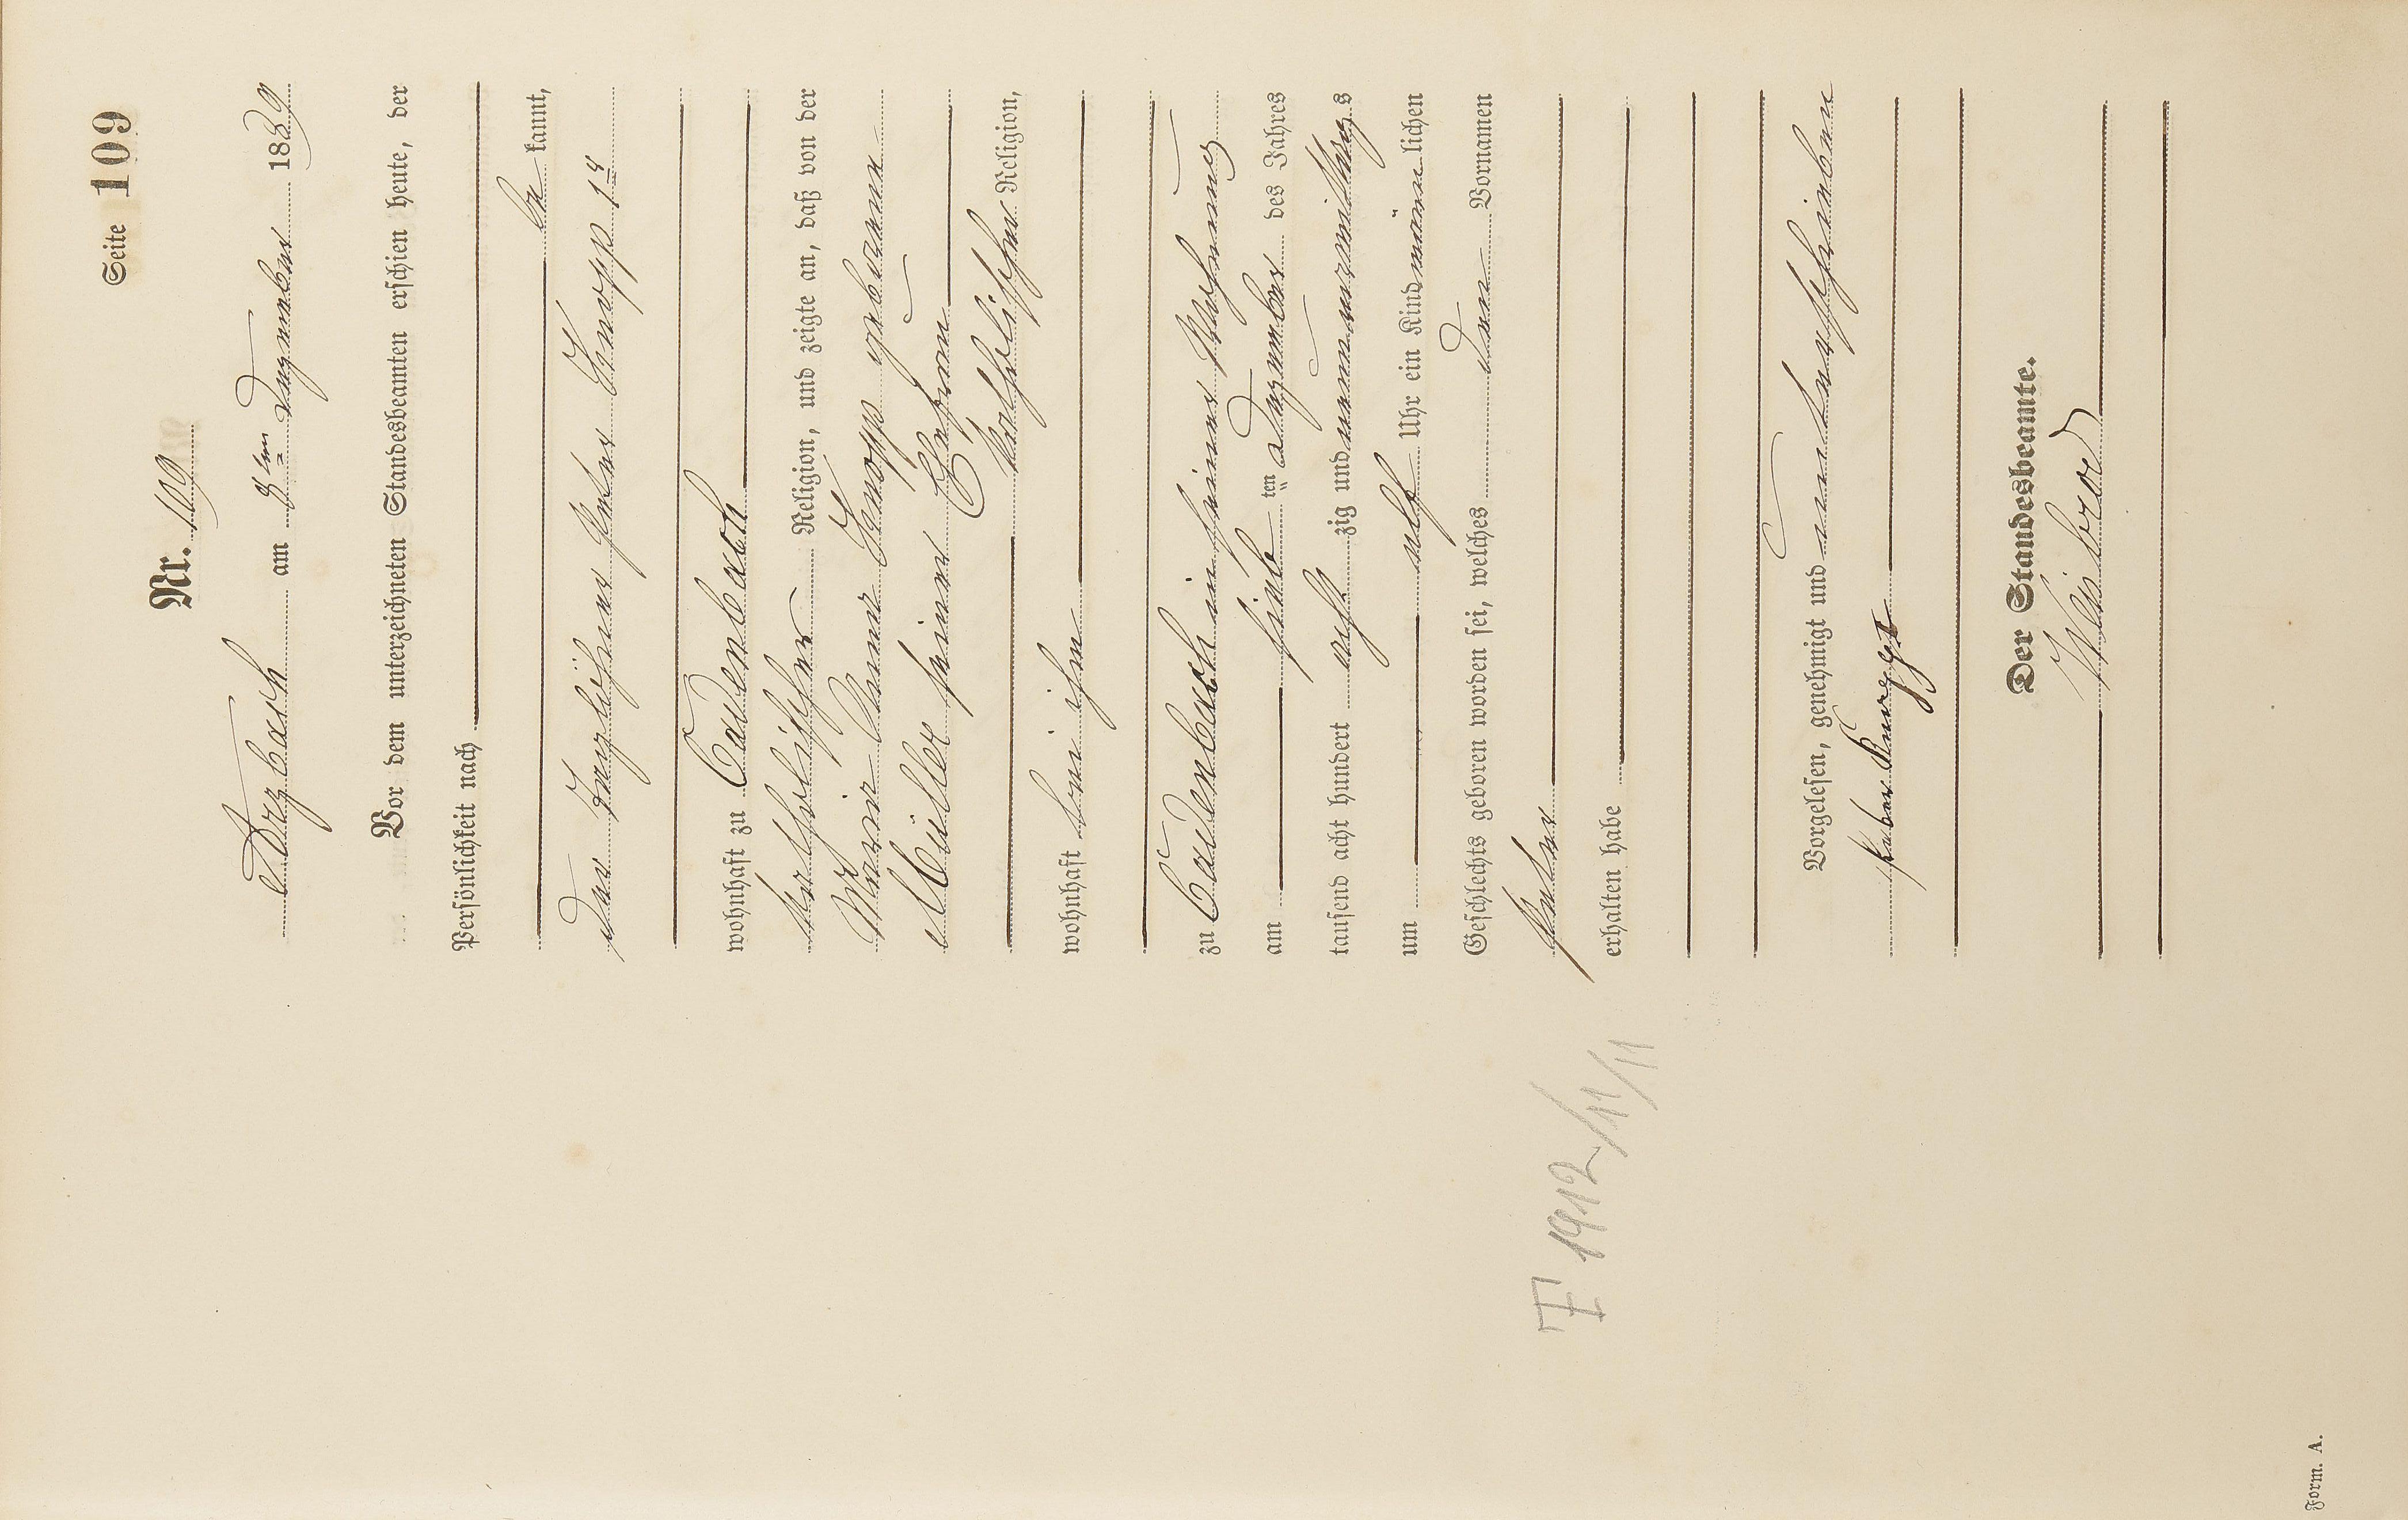 Seite 109
Nr. 109
Arzbach am 9ten Dezember 1889
Vor dem unterzeichneten Standesbeamten erschien heute, der
Persönlichkeit nach
be kannt,
der Peter Knopp 1r
wohnhaft zu Cadenbach
katholischer Religion, und zeigte an, daß von der
Maria Anna Knopp geborene
Müller seiner Ehefrau
katholischer Religion,
wohnhaft bei ihm
zu Cadenbach in seiner Wohnung
am sieb ten Dezember des Jahres
tausend acht hundert acht zig und neun vormittags
um elf Uhr ein Kind männ lichen
Geschlechts geboren worden sei, welches den Vornamen
Peter
erhalten habe
Vorgelesen, genehmigt und unterschrieben
Peter
Der Standesbeamte.
Weisbrod
F 1912/11/11
Form. A.